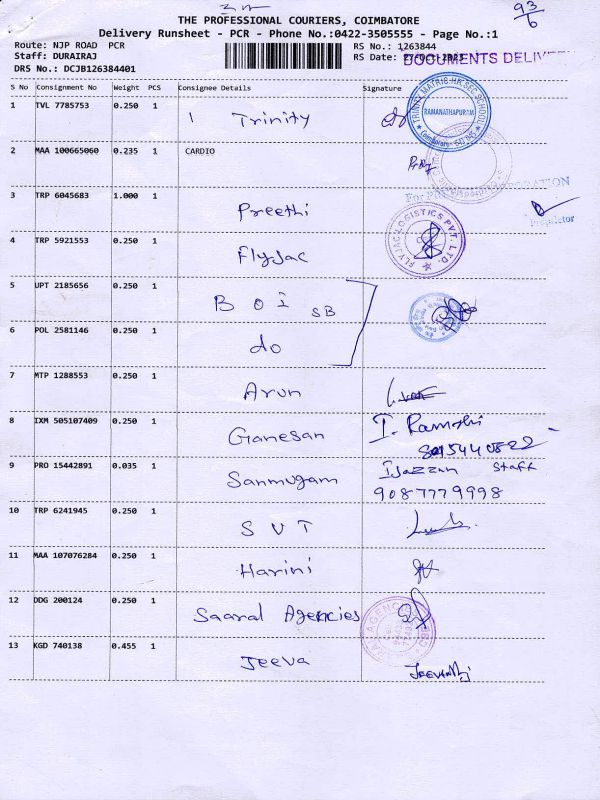 93/6
THE PROFESSIONAL COURIERS, COIMBATORE
Delivery Runsheet - PCR - Phone No.:0422-3505555 - Page No.:1
Route: NJP ROAD PCR RS No.: 1263844
Staff: DURAIRAJ RS Date: DOCUMENTS
DRS No.: DCJB126384401
S No Consignment No Weight PCS Consignee Details Signature
1 TVL 7785753 0.250 1 Trinity
TRINITY MATRIC.HR.SEC.SCHOOL
RAMANATHAPURAM
2 MAA 100665060 0.235 1 CARDIO
3 TRP 6045683 1.000 1 Preethi
For
Proprietor
4 TRP 5921553 0.250 1 Flyjac
FLYJAC LOGISTICS PVT. LTD.
5 UPT 2185656 0.250 1 BOI SB
6 POL 2581146 0.250 1 do
7 MTP 1288553 0.250 1 Arun
8 IXM 505107409 0.250 1 Ganesan
9 PRO 15442891 0.035 1 Sanmugam Staff
9087779998
10 TRP 6241945 0.250 1 SVT
11 MAA 107076284 0.250 1 Harini
12 DDG 200124 0.250 1 Saaral Agencies
13 KGD 740138 0.455 1 Jeeva